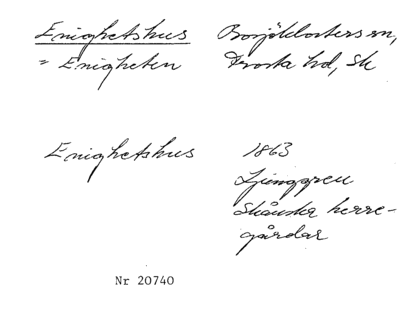 Enighetshus Bosjöklosters sn,
= Enigheten Frosta hd, Sk
Enighetshus 1863
Ljunggren
Skånska herre-
gårdar
Nr 20740